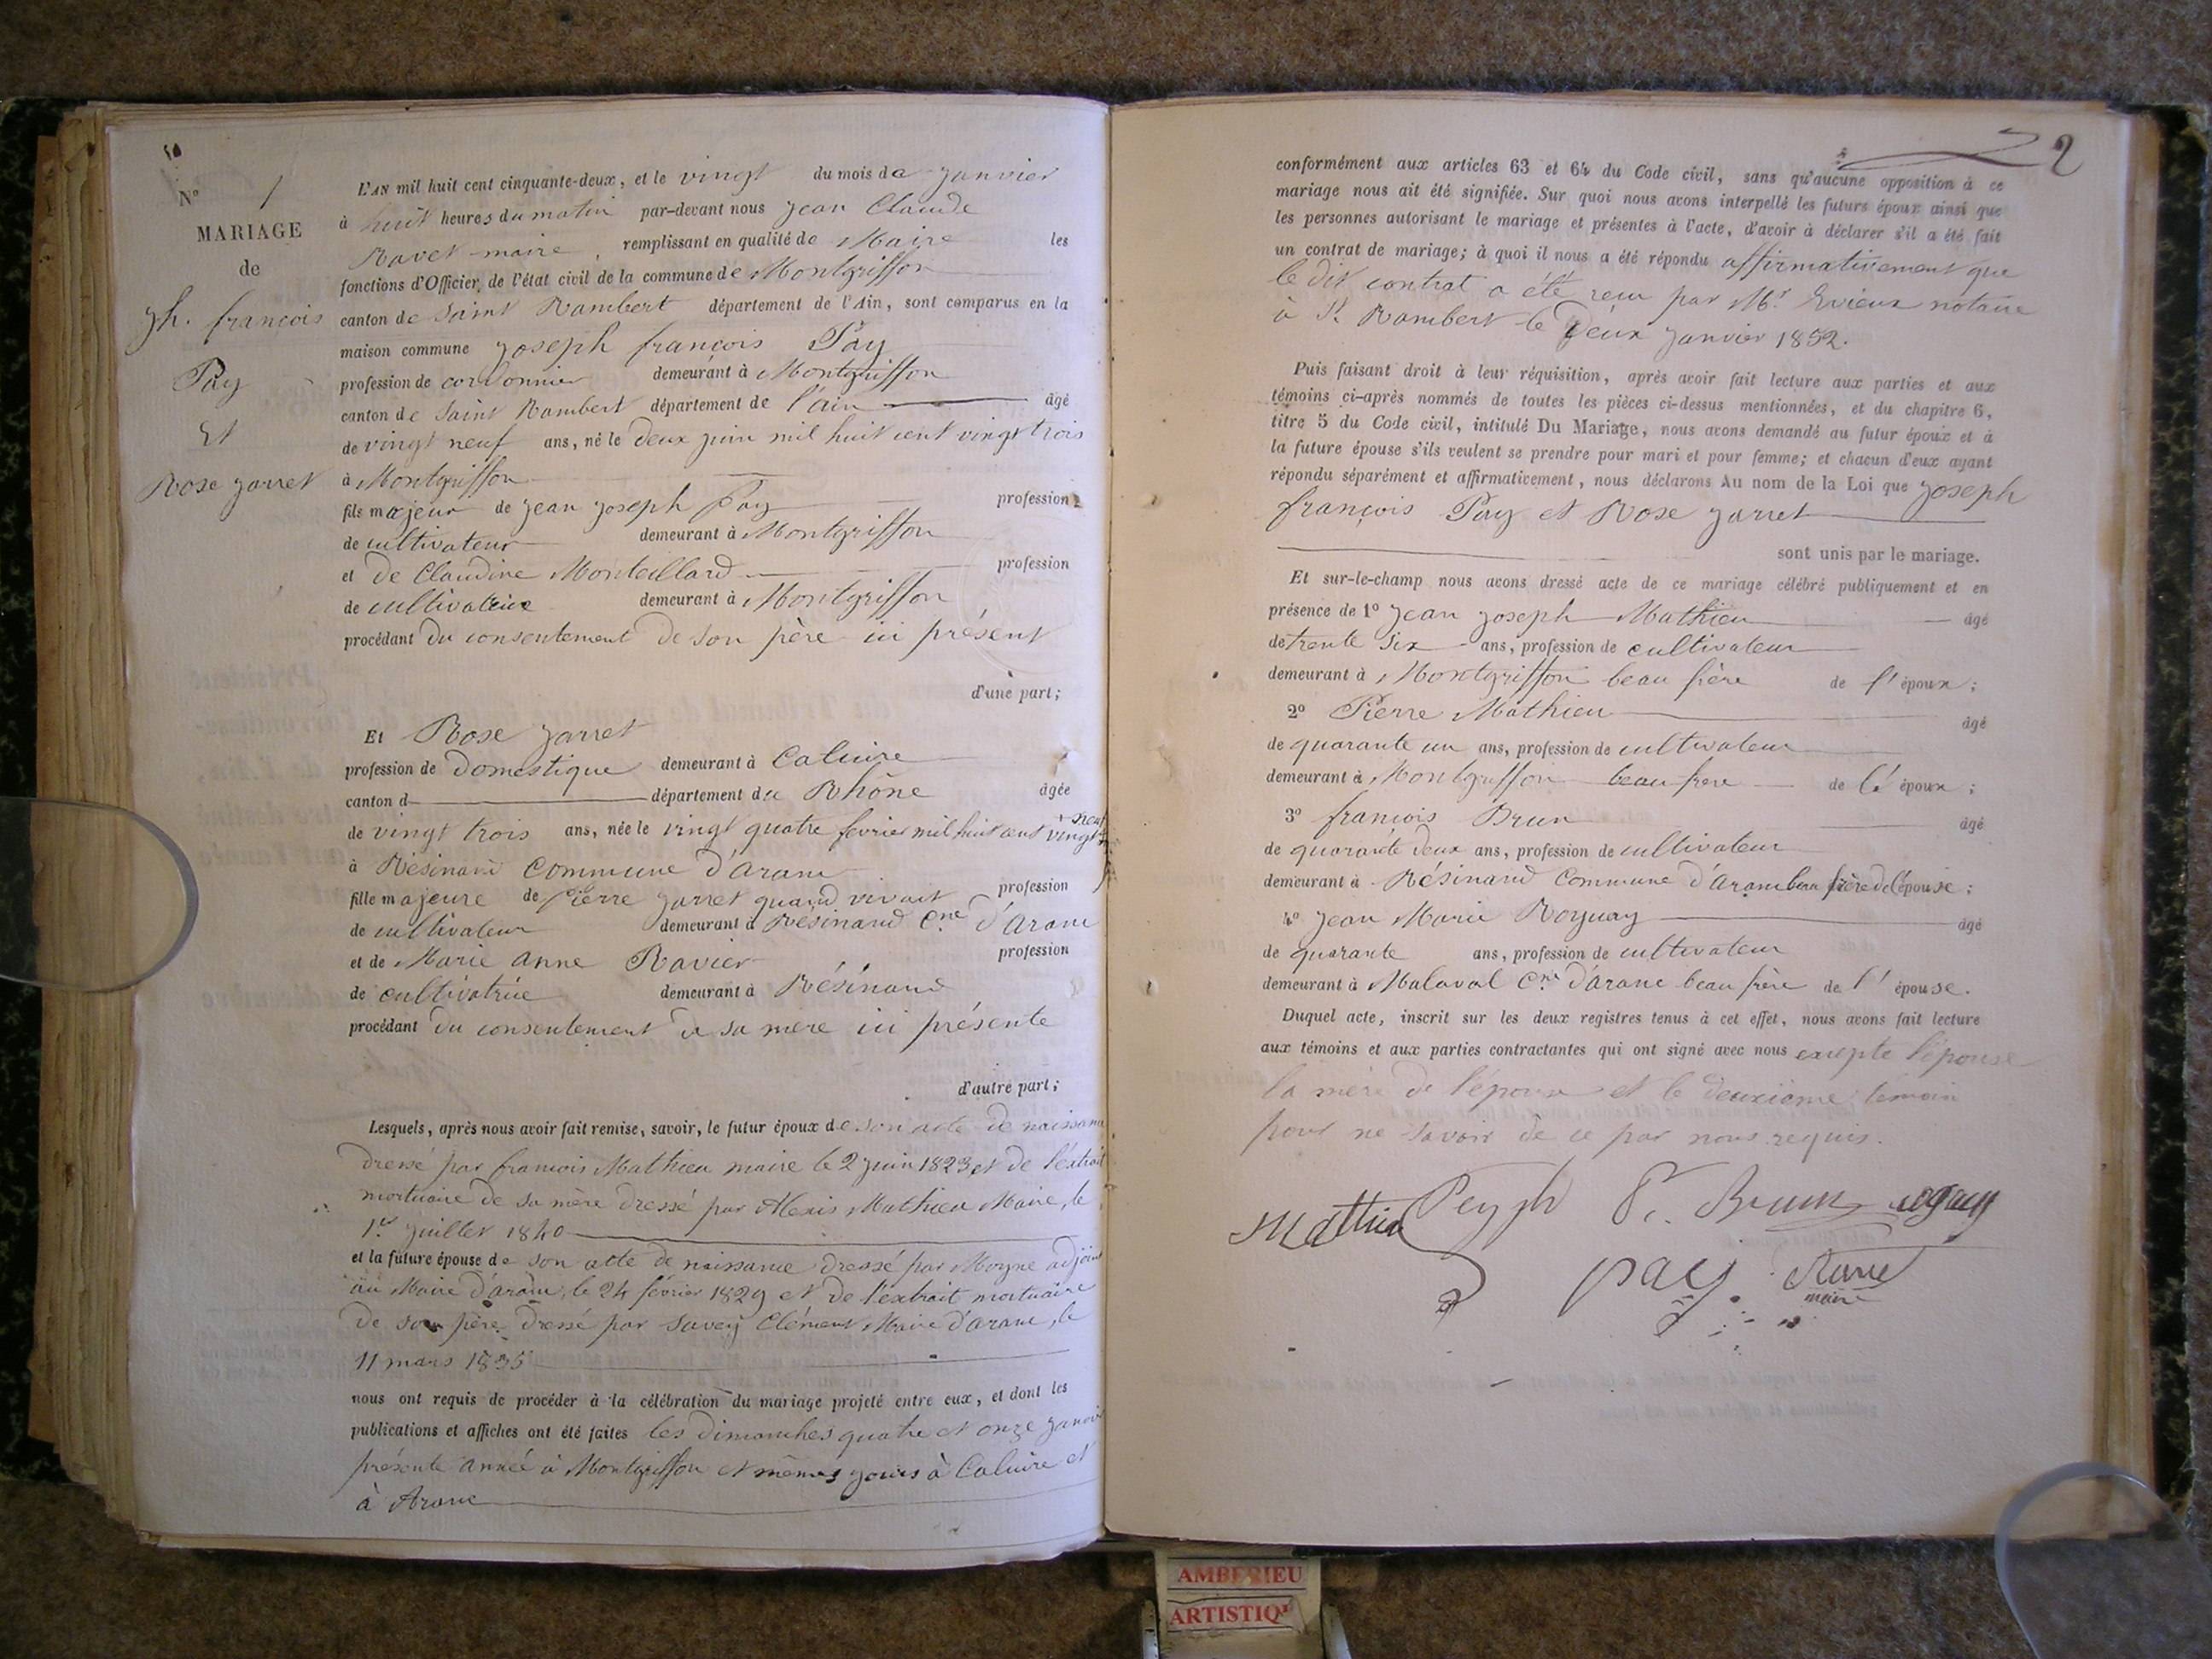 N° 1
MARIAGE
de
Jh. françois
Pay
Et
Rose Jarret
L'AN mil huit cent cinquante-deux, et le vingt du mois de Janvier
à huit heures du matin par-devant nous Jean Claude
Ravet maire, remplissant en qualité de Maire les
fonctions d'Officier de l'état civil de la commune de Montgriffon
canton de Saint Rambert département de l'Ain, sont comparus en la
maison commune Joseph françois Pay
profession de cordonnier demeurant à Montgriffon
canton de Saint Rambert département de l'ain âgé
de vingt neuf ans, né le deux juin mil huit cent vingt trois
à Montgriffon
fils majeur de Jean Joseph Pay profession
de cultivateur demeurant à Montgriffon
et de Claudine Monteillard profession
de cultivatrice demeurant à Montgriffon
procédant du consentement de son père ici présent
d'une part;
Et Rose Jarret
profession de domestique demeurant à Caluire
canton d département du Rhône âgée
de vingt trois ans, née le vingt quatre fevrier mil huit cent vingt + neuf
à Résinand Commune d'Aranc
fille majeure de Pierre Jarret quand vivait profession
de cultivateur demeurant à Résinand Cne d'Aranc
et de Marie Anne Ravier profession
de cultivatrice demeurant à Résinand
procédant du consentement de sa mère ici présente
d'autre part;
Lesquels, après nous avoir fait remise, savoir, le futur époux de son acte de naissance
dressé par francois Mathieu maire le 2 juin 1823 et de l'extrait
mortuaire de sa mère dressé par Alexis Mathieu Maire, le
1er Juillet 1840
et la future épouse de son acte de naissance dressé par Moyne adjoint
au Maire d'aranc, le 24 février 1829 et de l'extrait mortuaire
de son père dressé par Savey Clément Maire d'aranc, le
11 mars 1835
nous ont requis de procéder à la célébration du mariage projeté entre eux, et dont les
publications et affiches ont été faites les dimanches quatre et onze Janvier
présente année à Montgriffon et mêmes jours à Caluire et
à Aranc
2
conformément aux articles 63 et 64 du Code civil, sans qu'aucune opposition à ce
mariage nous ait été signifiée. Sur quoi nous avons interpellé les futurs époux ainsi que
les personnes autorisant le mariage et présentes à l'acte, d'avoir à déclarer s'il a été fait
un contrat de mariage; à quoi il nous a été répondu affirmativement que
le dit contrat a été reçu par Mr Evieux notaire
à St Rambert le Deux Janvier 1852.
Puis faisant droit à leur réquisition, après avoir fait lecture aux parties et aux
témoins ci-après nommés de toutes les pièces ci-dessus mentionnées, et du chapitre 6,
titre 5 du Code civil, intitulé Du Mariage, nous avons demandé au futur époux et à
la future épouse s'ils veulent se prendre pour mari et pour femme; et chacun d'eux ayant
répondu séparément et affirmativement, nous déclarons Au nom de la Loi que Joseph
françois Pay et Rose Jarret
sont unis par le mariage.
Et sur-le-champ nous avons dressé acte de ce mariage célébré publiquement et en
présence de 1° Jean Joseph Mathieu âgé
de trente six ans, profession de cultivateur
demeurant à Montgriffon beau frère de l'époux;
2° Pierre Mathieu âgé
de quarante un ans, profession de cultivateur
demeurant à Montgriffon beau frere de l'époux;
3° francois Brun âgé
de quarante deux ans, profession de cultivateur
demeurant à Résinand Commune d'Aranc beau frère de l'épouse;
4° Jean Marie Roguay âgé
de quarante ans, profession de cultivateur
demeurant à Malaval Cne d'aranc beau frère de l'épouse.
Duquel acte, inscrit sur les deux registres tenus à cet effet, nous avons fait lecture
aux témoins et aux parties contractantes qui ont signé avec nous excepté l'épouse
la mère de l'époux et le deuxième témoin
pour ne savoir de ce par nous requis.
Mathieu Pey jh Brun
pay
maire
AMBERIEU
ARTISTIQ